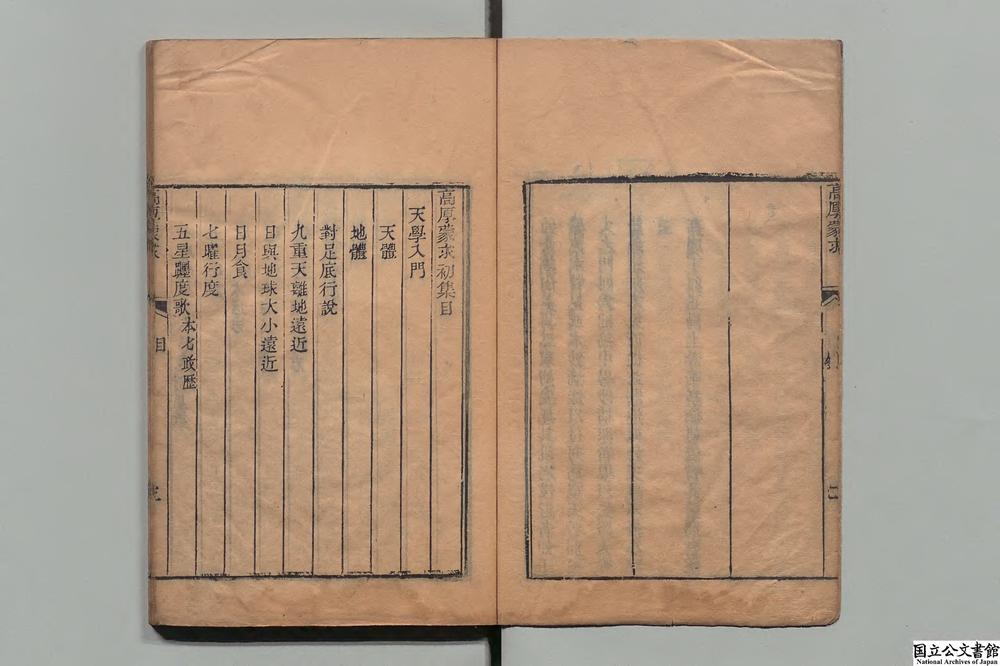 高厚蒙求
二
高厚蒙求初集目
天學入門
天體
地體
對足底行說
九重天離地遠近
日與地球大小遠近
日月食
七曜行度
五星躔度歌本七政歷
高厚蒙求
目
三
国立公文書館
National Archives of Japan